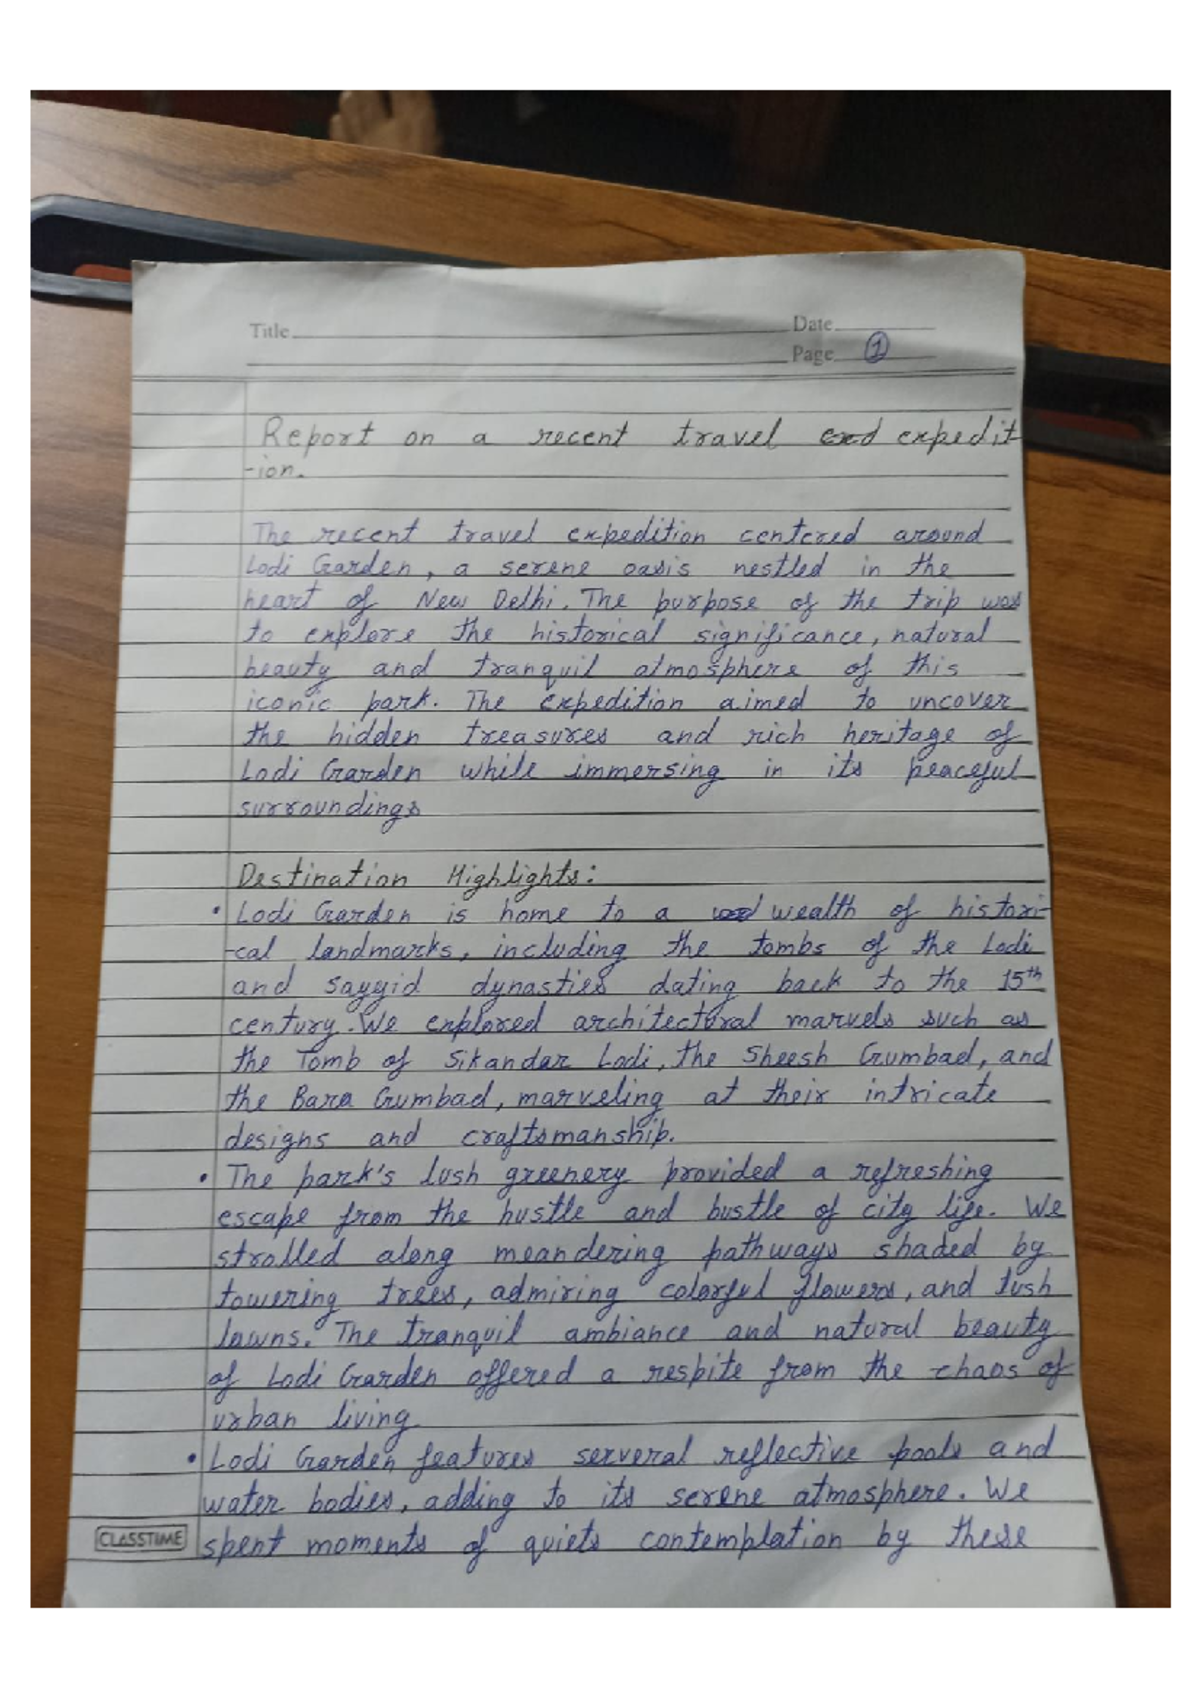 Title
Date
Page 1
Report on a recent travel expedit
-ion.
The recent travel expedition centered around
Lodi Garden, a serene oasis nestled in the
heart of New Delhi. The purpose of the trip was
to explore the historical significance, natural
beauty and tranquil atmosphere of this
iconic park. The expedition aimed to uncover
the hidden treasures and rich heritage of
Lodi Garden while immersing in its peaceful
surroundings
Destination Highlights:
• Lodi Garden is home to a wealth of histori-
-cal landmarks, including the tombs of the Lodi
and sayyid dynasties dating back to the 15th
century. We explored architectural marvels such as
the Tomb of Sikandar Lodi, the Sheesh Gumbad, and
the Bara Gumbad, marveling at their intricate
designs and craftsmanship.
• The park's lush greenery provided a refreshing
escape from the hustle and bustle of city life. We
strolled along meandering pathways shaded by
towering trees, admiring colorful flowers, and lush
lawns. The tranquil ambiance and natural beauty
of Lodi Garden offered a respite from the chaos of
urban living.
• Lodi Garden features serveral reflective pools and
water bodies, adding to its serene atmosphere. We
spent moments of quiets contemplation by these
CLASSTIME